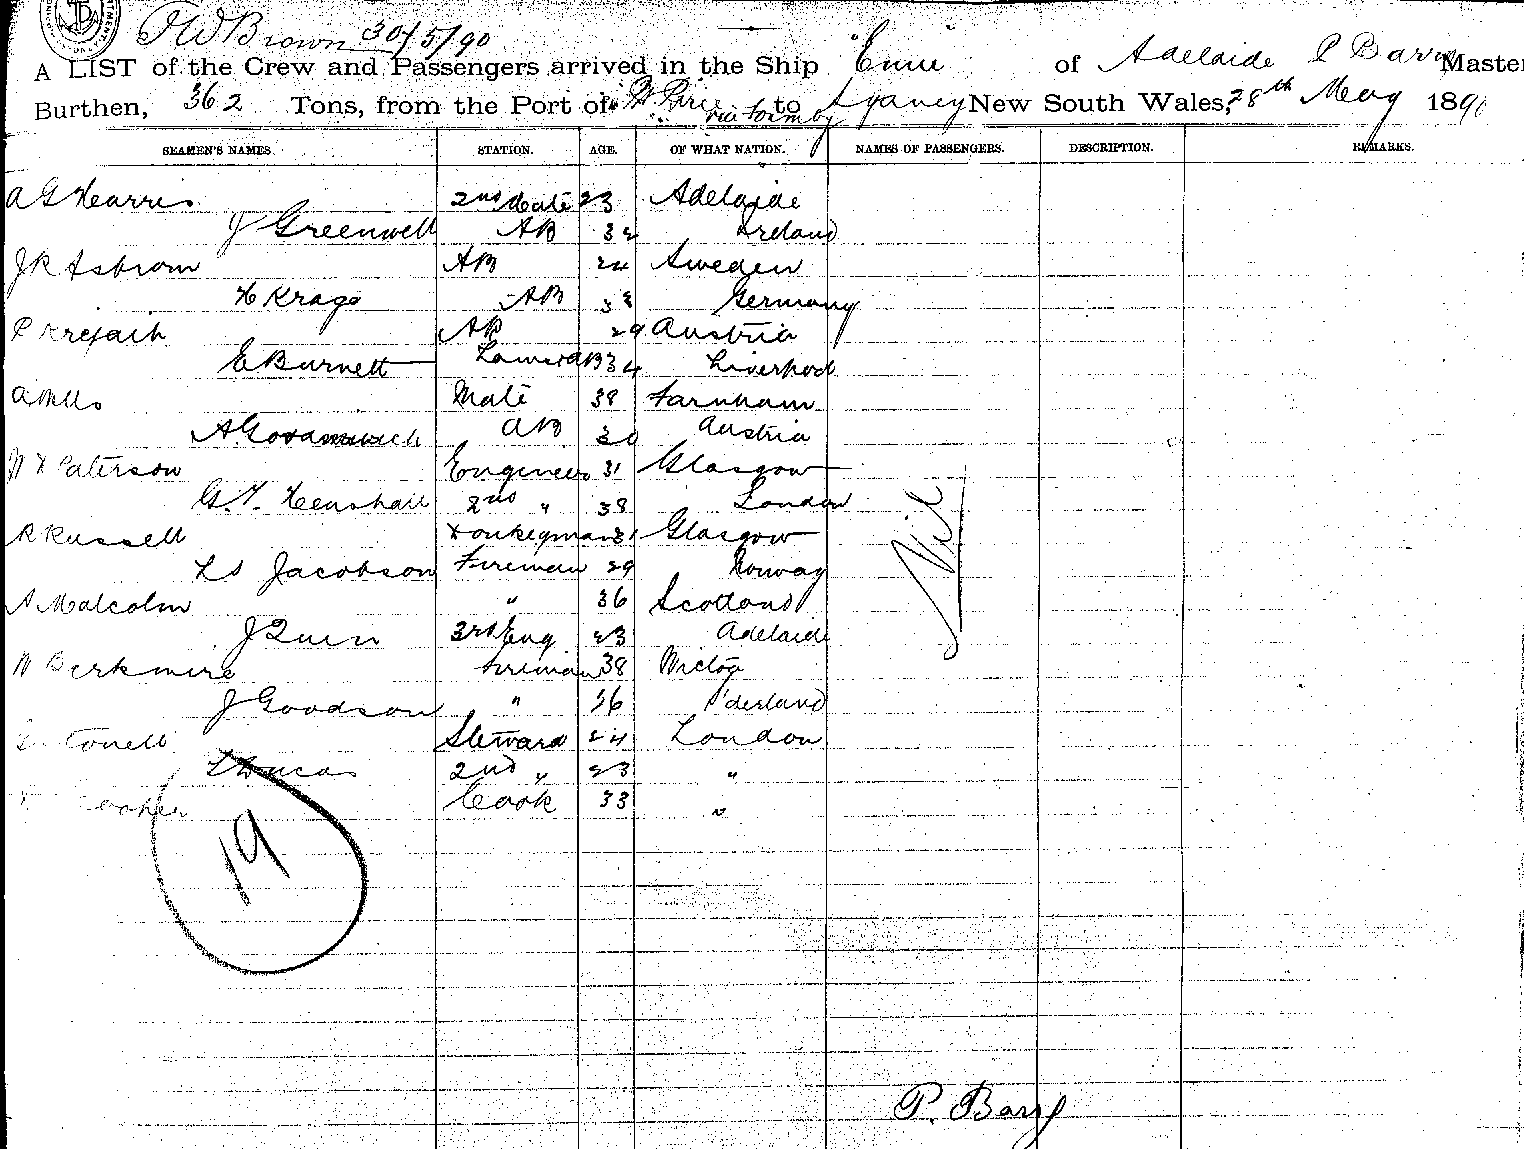 F W Brown 30/5/90
A LIST of the Crew and Passengers arrived in the Ship "Ennie" of Adelaide P Barry Master
Burthen, 362 Tons, from the Port of Pt Pirie via Formby to Sydney New South Wales, 28th May 1890
SEAMEN'S NAMES. STATION. AGE. OF WHAT NATION. NAMES OF PASSENGERS. DESCRIPTION. REMARKS.
A G Harris 2nd Mate 23 Adelaide
J Greenwell AB 32 Ireland
J R Asbrom AB 24 Sweden
H Krage AB 38 Germany
P AB 29 Austria
E Burnett Lamps & AB 34 Liverpool
A Mills Mate 38 Farnham
A AB 30 Austria
W H Paterson Engineer 31 Glasgow
G. F. Henshall 2nd " 38 London
R Russell Donkeyman 31 Glasgow
L S Jacobson Fireman 29 Norway
A Malcolm " 36 Scotland
J Quin 3rd Eng 23 Adelaide
W Berkmire Fireman 38
J Goodson " 36
Steward 24 London
Lucas 2nd " 23 "
Cook 33 "
Nil
19
P. Barry